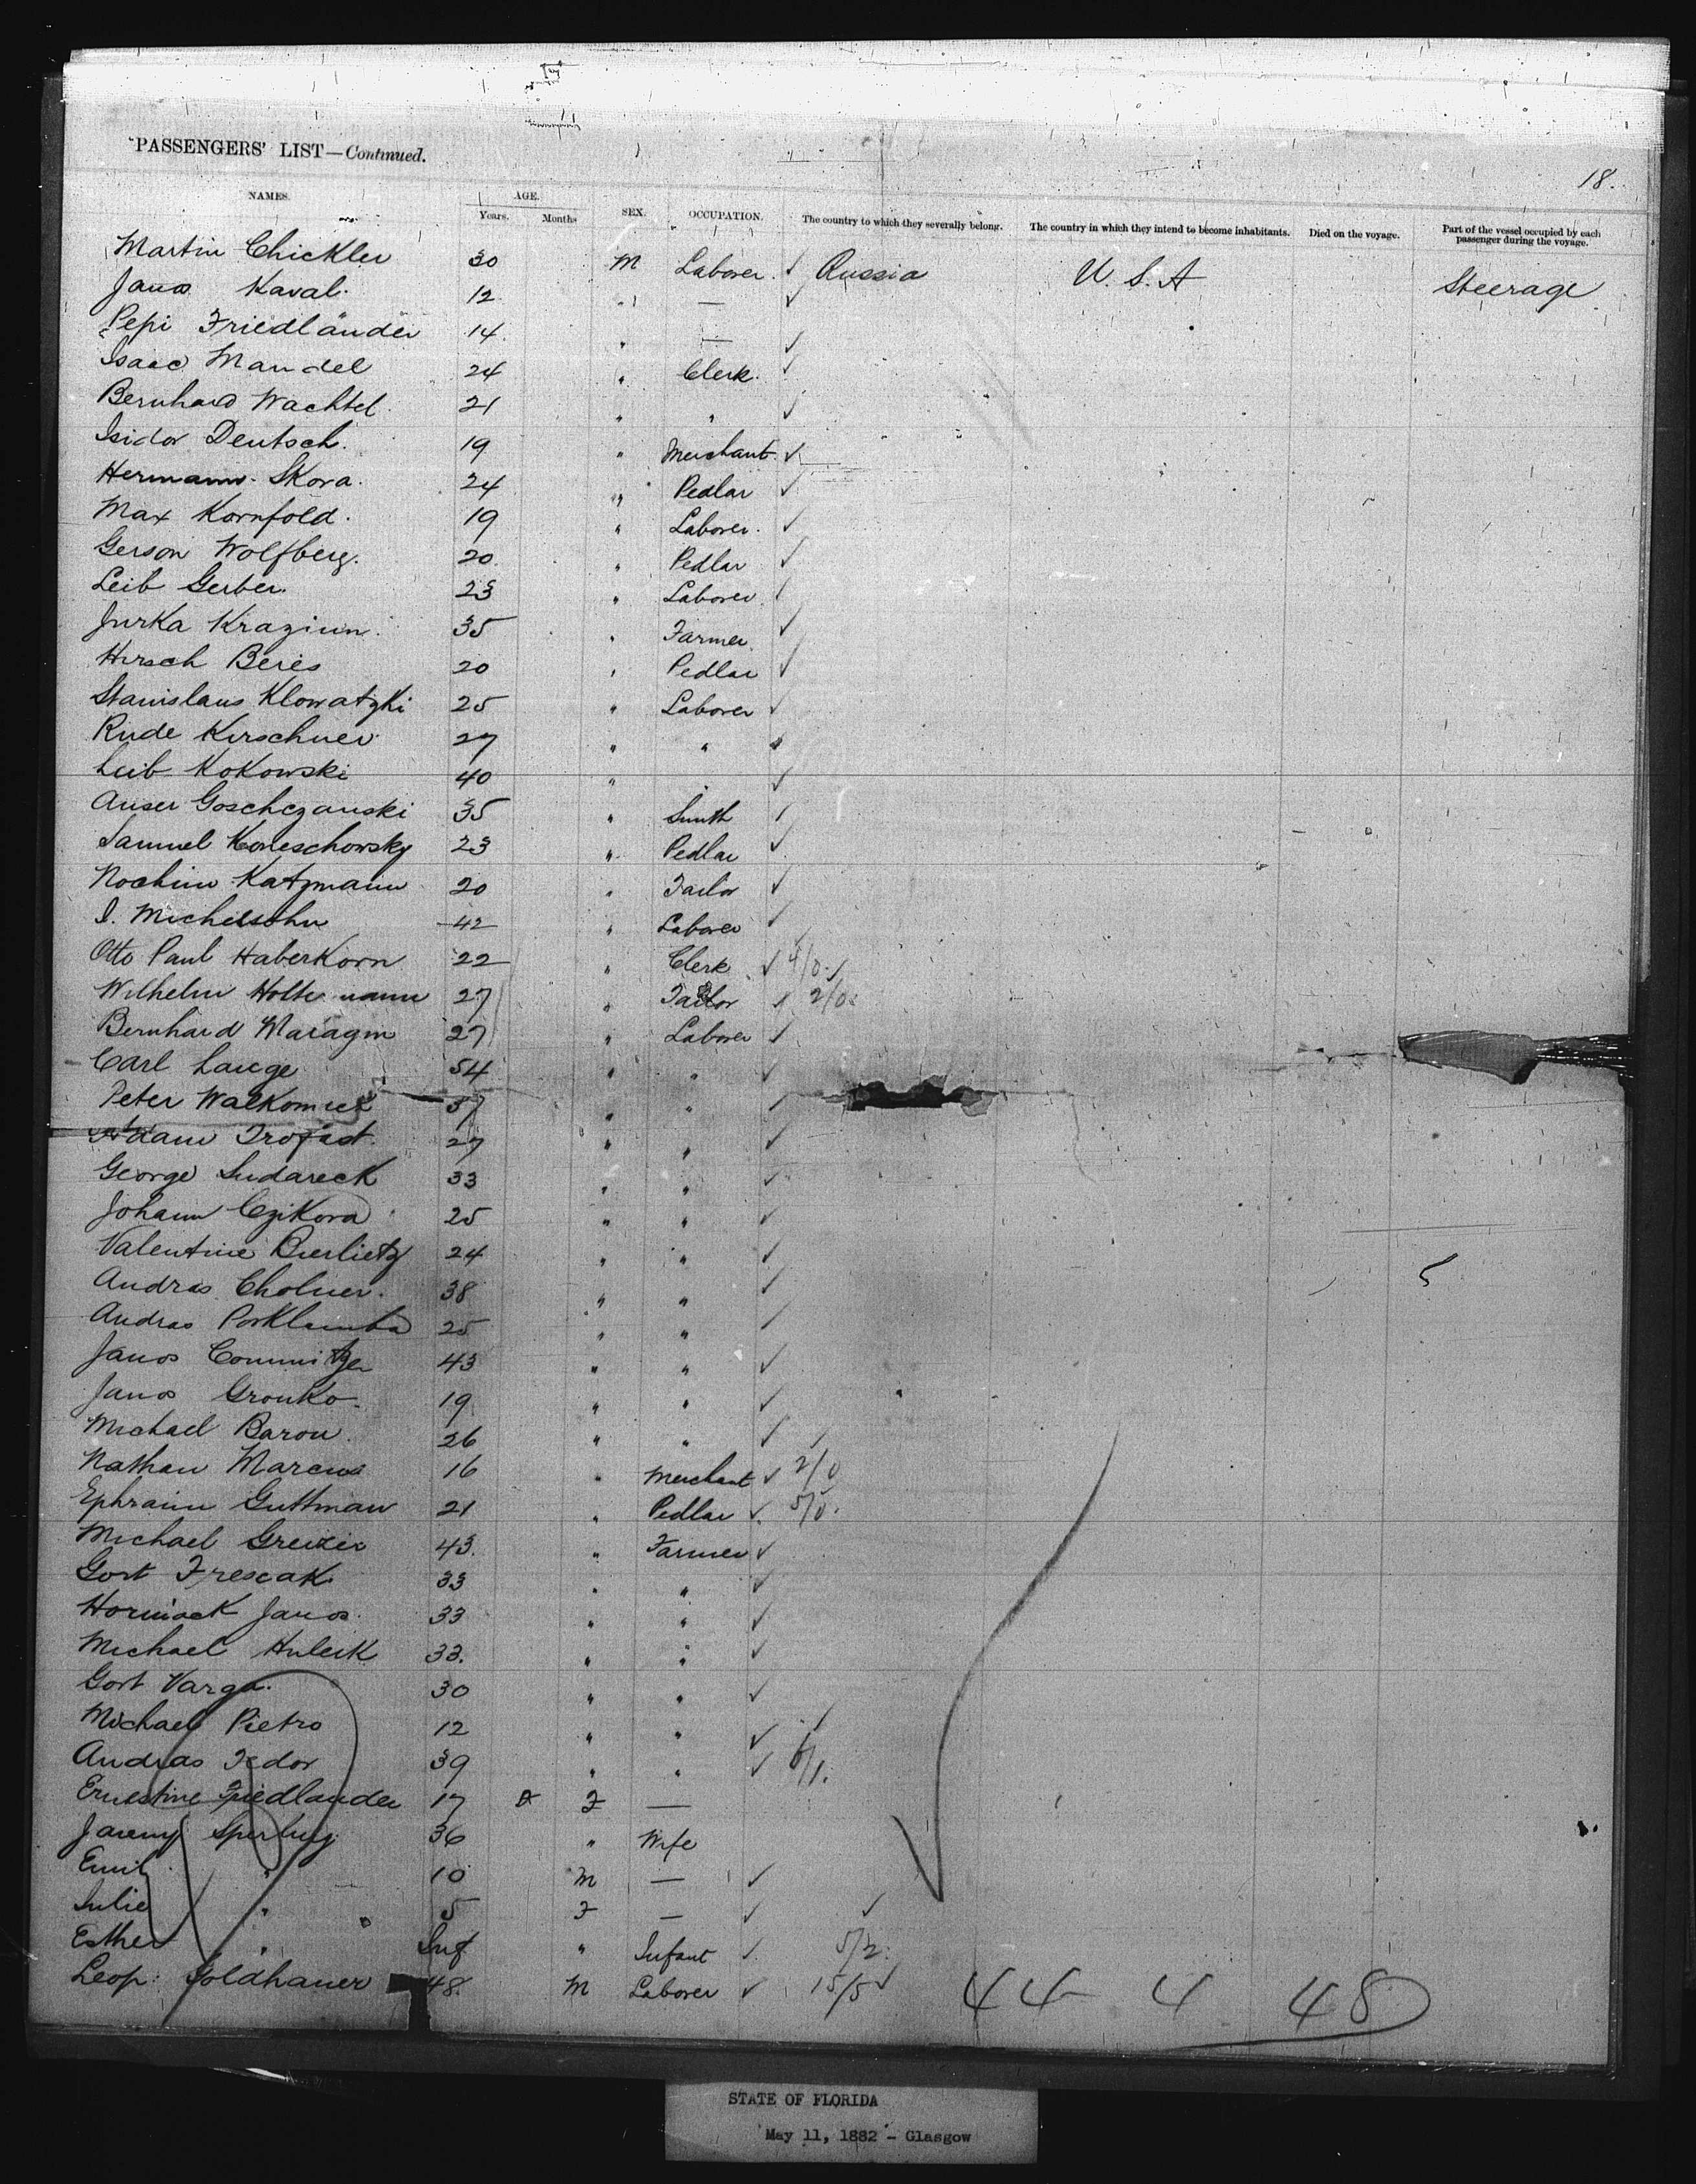 PASSENGERS' LIST—Continued.
18.
NAMES. AGE. Years. Months SEX. OCCUPATION. The country to which they severally belong. The country in which they intend to become inhabitants. Died on the voyage. Part of the vessel occupied by each passenger during the voyage.
Martin Chickler 30 M Laborer ✓ Russia U.S.A Steerage
Janos Kaval 12 " — ✓
Pepi Friedländer 14 " — ✓
Isaac Mandel 24 " Clerk ✓
Bernhard Wachtel 21 " " ✓
Isidor Deutsch 19 " Merchant ✓
Hermann Skora 24 " Pedlar ✓
Max Kornfold 19 " Laborer ✓
Gerson Wolfberg 20 " Pedlar ✓
Leib Gerber 23 " Laborer ✓
Jurka Kraziun 35 " Farmer ✓
Hirsch Beres 20 " Pedlar ✓
Stanislaus Klowatzki 25 " Laborer ✓
Rude Kirschner 27 " " ✓
Leib Kokowski 40 " " ✓
Anser Goschczanski 35 " Smith ✓
Samuel Koneschowsky 23 " Pedlar ✓
Nochim Katzmann 20 " Tailor ✓
I. Michelsohn 42 " Laborer ✓
Otto Paul Haberkorn 22 " Clerk ✓ 4/0 ✓
Wilhelm Holtemann 27 " Tailor ✓ 2/0
Bernhard Maragm 27 " Laborer ✓
Carl Lange 54 " " ✓
Peter Walkomick 37 " " ✓
Adam Trofast 27 " " ✓
George Sudareck 33 " " ✓
Johann Czikora 25 " " ✓
Valentine Bierlietz 24 " " ✓
Andras Cholner 38 " " ✓
Andras Porklamba 25 " " ✓
Janos Commitzer 43 " " ✓
Janos Gronko 19 " " ✓
Michael Baron 26 " " ✓
Nathan Marcus 16 " Merchant ✓ 2/0
Ephraim Guttman 21 " Pedlar ✓ 5/0
Michael Greizer 43 " Farmer ✓
Gort Frescak 33 " " ✓
Horniack Janos 33 " " ✓
Michael Huleik 33 " " ✓
Gort Varga 30 " " ✓
Michael Pietro 12 " " ✓
Andras Fedor 39 " " ✓ 6/1.
Ernestine Friedlander 17 F —
Jareny Sperling 36 " Wife
Emil " 10 M — ✓
Julie " 5 F — ✓ ✓
Esther " Inf " Infant ✓ 5/2
Leop: Goldhauer 48 M Laborer ✓ 15/5 ✓
44 4 48
STATE OF FLORIDA
May 11, 1882 - Glasgow